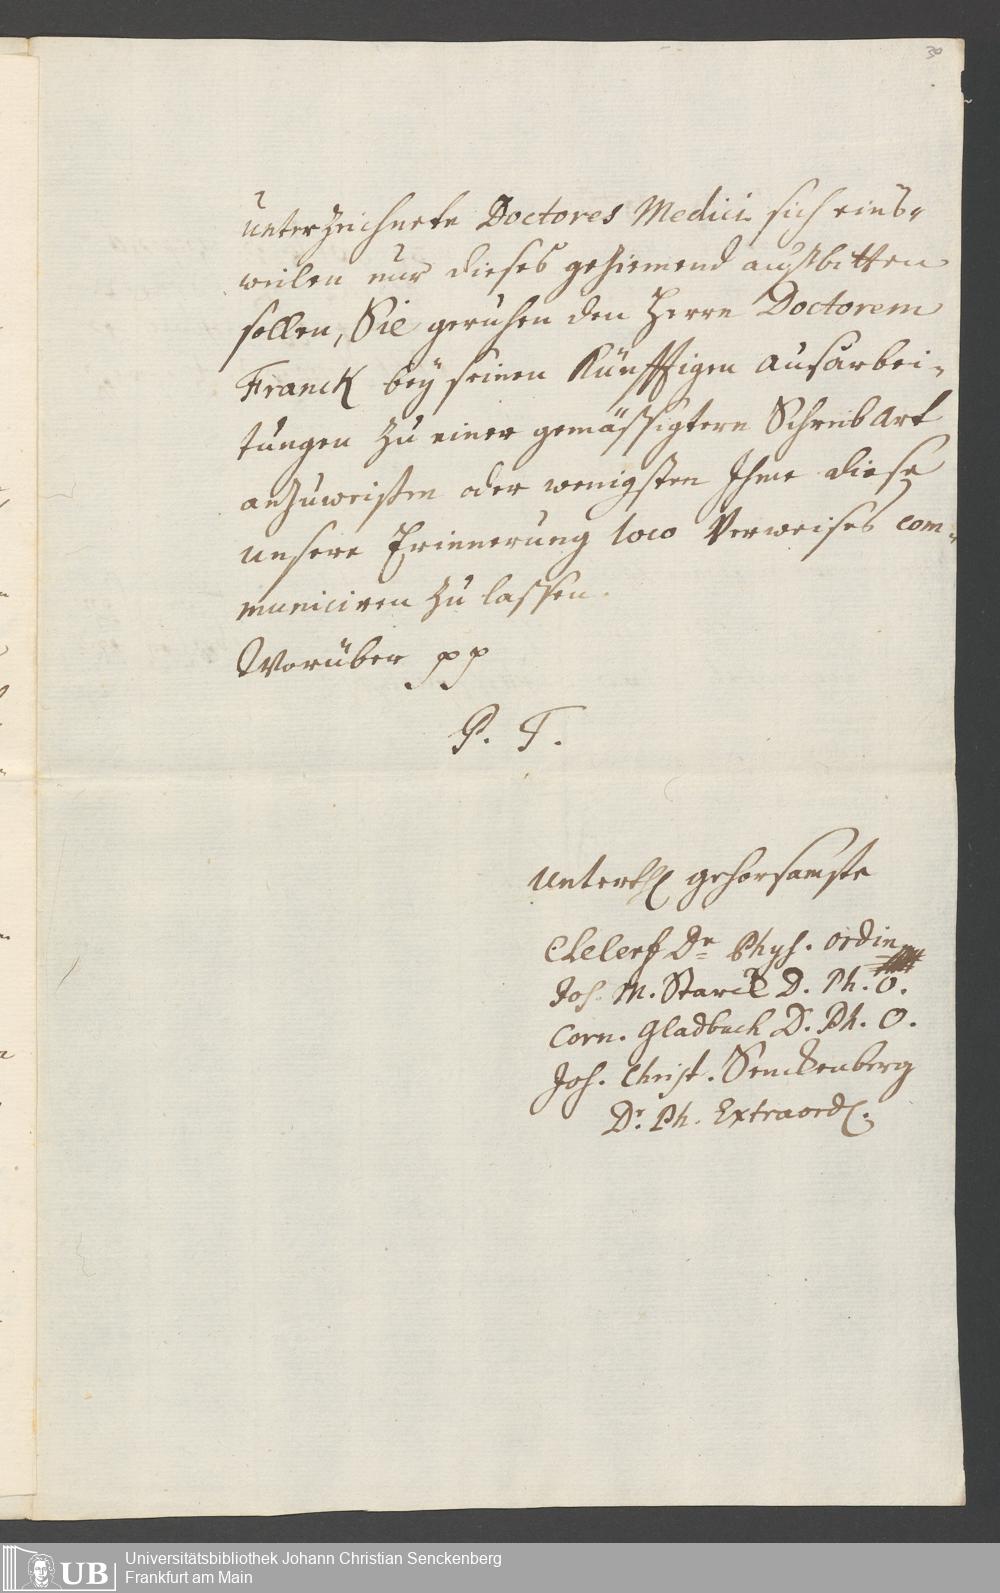 30
unterzeichnete Doctores Medici sich eins-
weilen nur dieses geziemend ausbitten
sollen, Sie geruhen den Herrn Doctorem
Franck bey seinen künfftigen ausarbei-
tungen zu einer gemässigtern Schreibart
anzuweisen oder wenigsten Ihme diese
unsere Erinnerung loco Verweises com-
municiren zu lassen.
Worüber pp
P. T.
Unterth gehorsamste
Dr Phys. ordin
Joh. M. Starck D. Ph. O.
Corn. Gladbach D. Ph. O.
Joh. Christ. Senckenberg
Dr. Ph. Extraord.
UB
Universitätsbibliothek Johann Christian Senckenberg
Frankfurt am Main